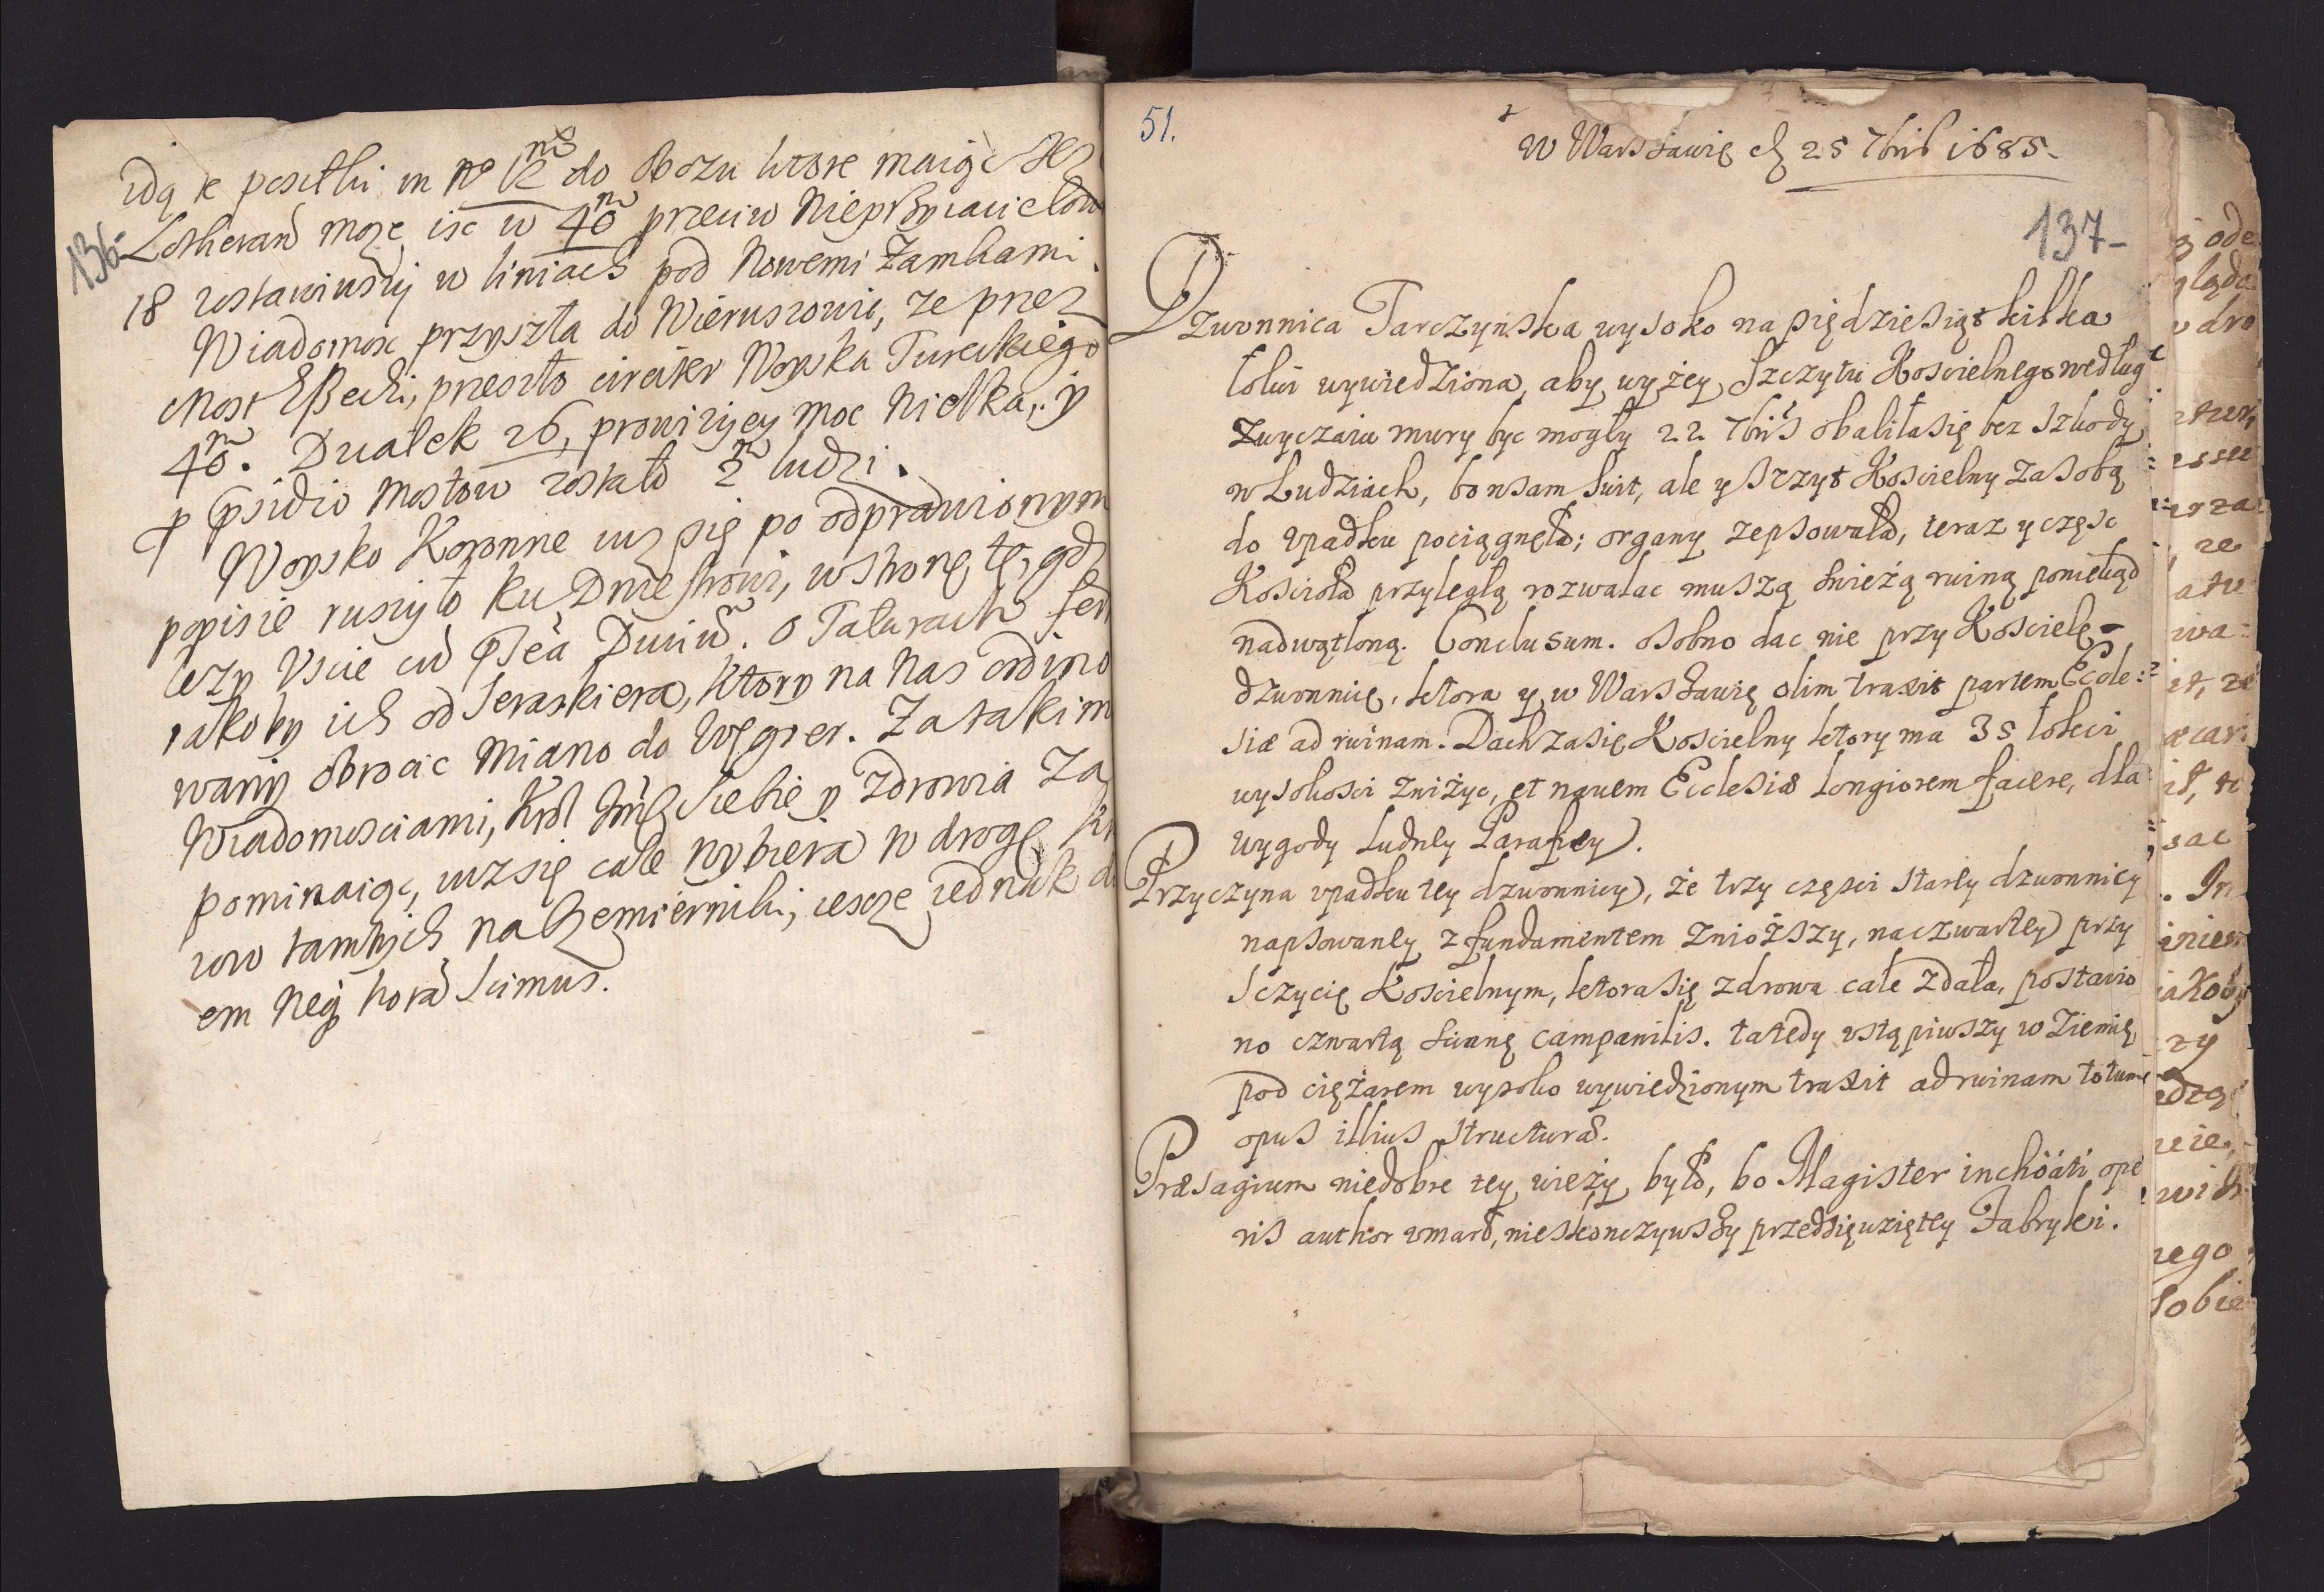 136.
idą te posiłki in N° 12 do Obozu ktore maiąc Xz
Lotheran może isc w 40 przeciw Nieprzyiacielow
18 zostawiwszy w liniach pod Nowemi Zamkami.
Wiadomosc przyszła do Wieruszowic, ze przez
Most Essecki, przeszło circiter Woyska Tureckiego
40. Dział ek 26, prowizyey moc Wielka, y
p psidio Mostow zostało 2 ludzi.
Woysko Koronne iuz się po odprawionym
popisie ruszyło ku Dniestrowi, w stronę tę, gdz
lezy Uscie
O Tatarach fert
iakoby ich od Seraskiera, ktory na Nas ordino
wany obrocic Miano do Węgier. Za takim
Wiadomosciami, Krol Siebie y Zdrowia Za
pominaiąc, iuz się cale wybiera w drogę
na Czemierniki; iescze iednak d
em Neq horã Scimus.
51.
W Warszawie d 25 7bris 1685.
137-
Dzwonnica Tarczynska wysoko na piędziesiąt kilka
łokci wywiedziona, aby wyżey Szczytu Koscielnego według
Zwyczaiu mury byc mogły 22 7bris obaliła się bez szkody
w Ludziach, bo w sam swit, ale y szczyt Koscielny za sobą
do upadku pociągnęła; organy zepsowała, teraz y częsc
Koscioła przyległą rozwalac muszą swieżą ruiną poniekąd
nadwątloną. Conclusum. osobno dac nie przy Kosciele
dzwonnicę, ktora y w Warszawie olim traxit partem Eccle:
siæ ad ruinam. Dach zasię Koscielny ktory ma 35 łokci
wysokosci zniżyc, et navem Ecclesiæ longiorem facere, dla
wygody Ludney Parafiey.
Przyczyna upadku tey dzwonnicy, że trzy częsci starey dzwonnicy
napsowaney z fundamentem Zniozszy, na czwartey przy
sczycie Koscielnym, ktora się zdrowa cale zdała, postawio
no czwartą scianę campanilis. ta tedy ustąpiwszy w Ziemię,
pod ciężarem wysoko wywiedzionym traxit ad ruinam totum
opus illius structuræ.
Præsagium niedobre tey wieży było, bo Magister inchoati ope
ris author umarł, nieskonczywszy przedsięwziętey Fabryki.